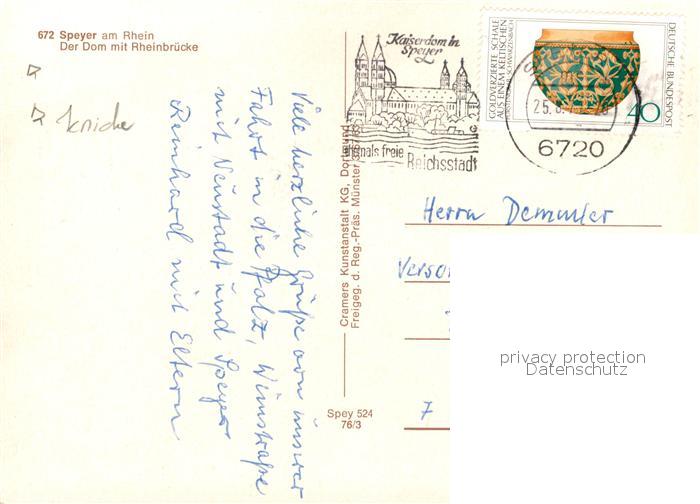 672 Speyer am Rhein
Der Dom mit Rheinbrücke
Knicke
Viele herzliche Grüße von unserer
Fahrt in die Pfalz, Weinstraße
mit Neustadt und Speyer
Reinhard mit Eltern
Cramers Kunstanstalt KG, Dortmund
Freigeg. d. Reg.-Präs. Münster
Spey 524
76/3
Kaiserdom in
Speyer
ehemals freie
Reichsstadt
GOLDVERZIERTE SCHALE
AUS EINEM KELTISCHEN
DEUTSCHE BUNDESPOST
40
25.8.
6720
Herrn Demmler
7
privacy protection
Datenschutz